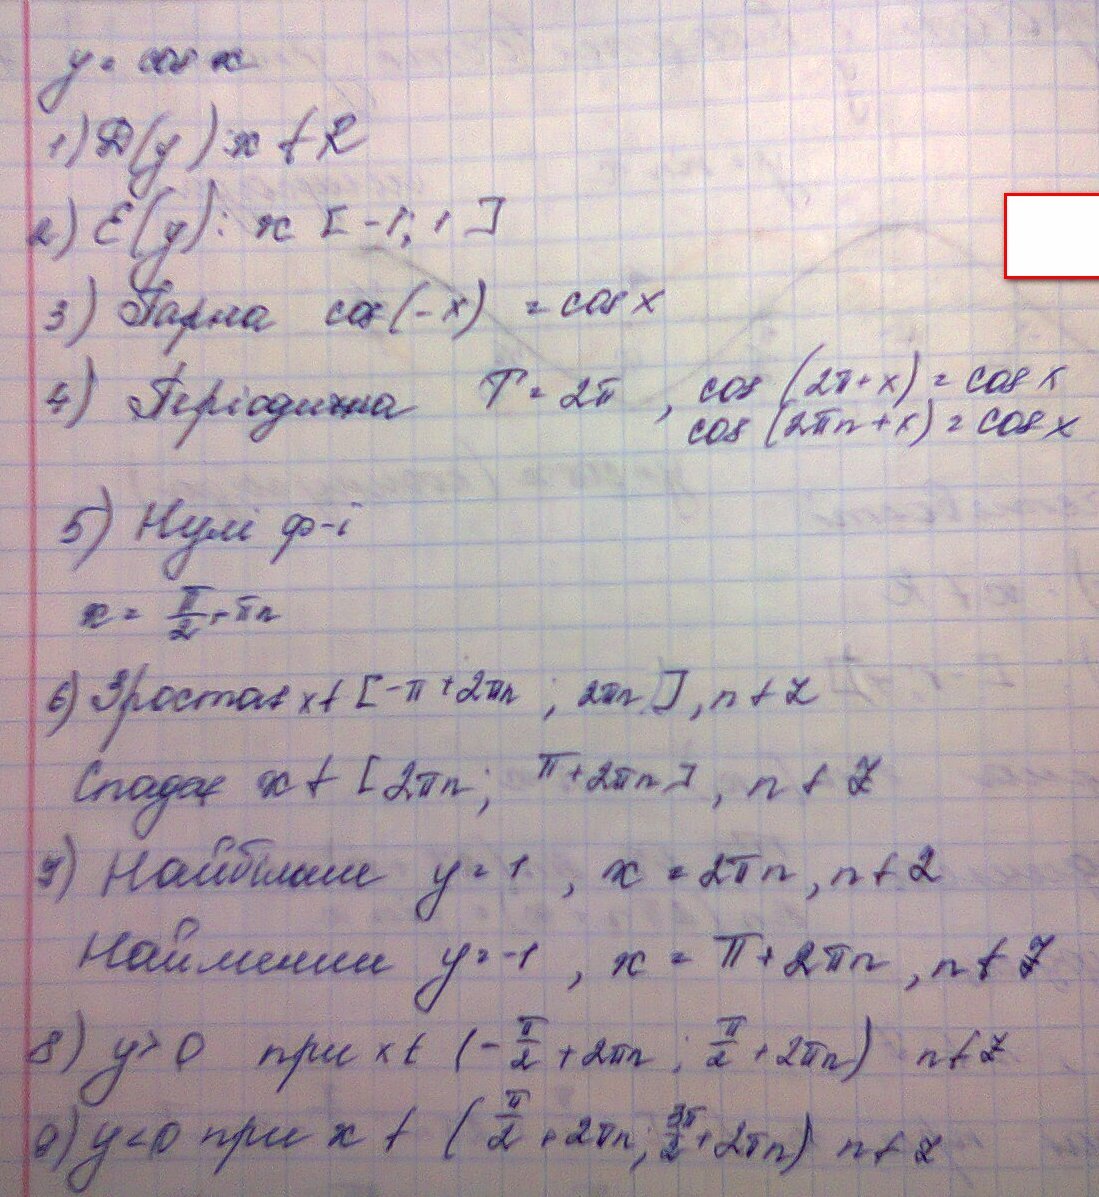 y = cos x
1) D(y): x ∈ R
2) E(y): x [-1; 1]
3) Парна cos(-x) = cos x
4) Періодична T = 2π, cos (2π+x) = cos x
cos (2πn+x) = cos x
5) Нулі ф-ї
x = π/2 + πn
6) Зростає x ∈ [-π+2πn ; 2πn], n ∈ Z
Спадає x ∈ [2πn; π+2πn], n ∈ Z
7) Найбільше y = 1, x = 2πn, n ∈ Z
Найменше y = -1, x = π+2πn, n ∈ Z
8) y > 0 при x ∈ (-π/2 + 2πn ; π/2 + 2πn) n ∈ Z
9) y < 0 при x ∈ (π/2 + 2πn; 3π/2 + 2πn) n ∈ Z